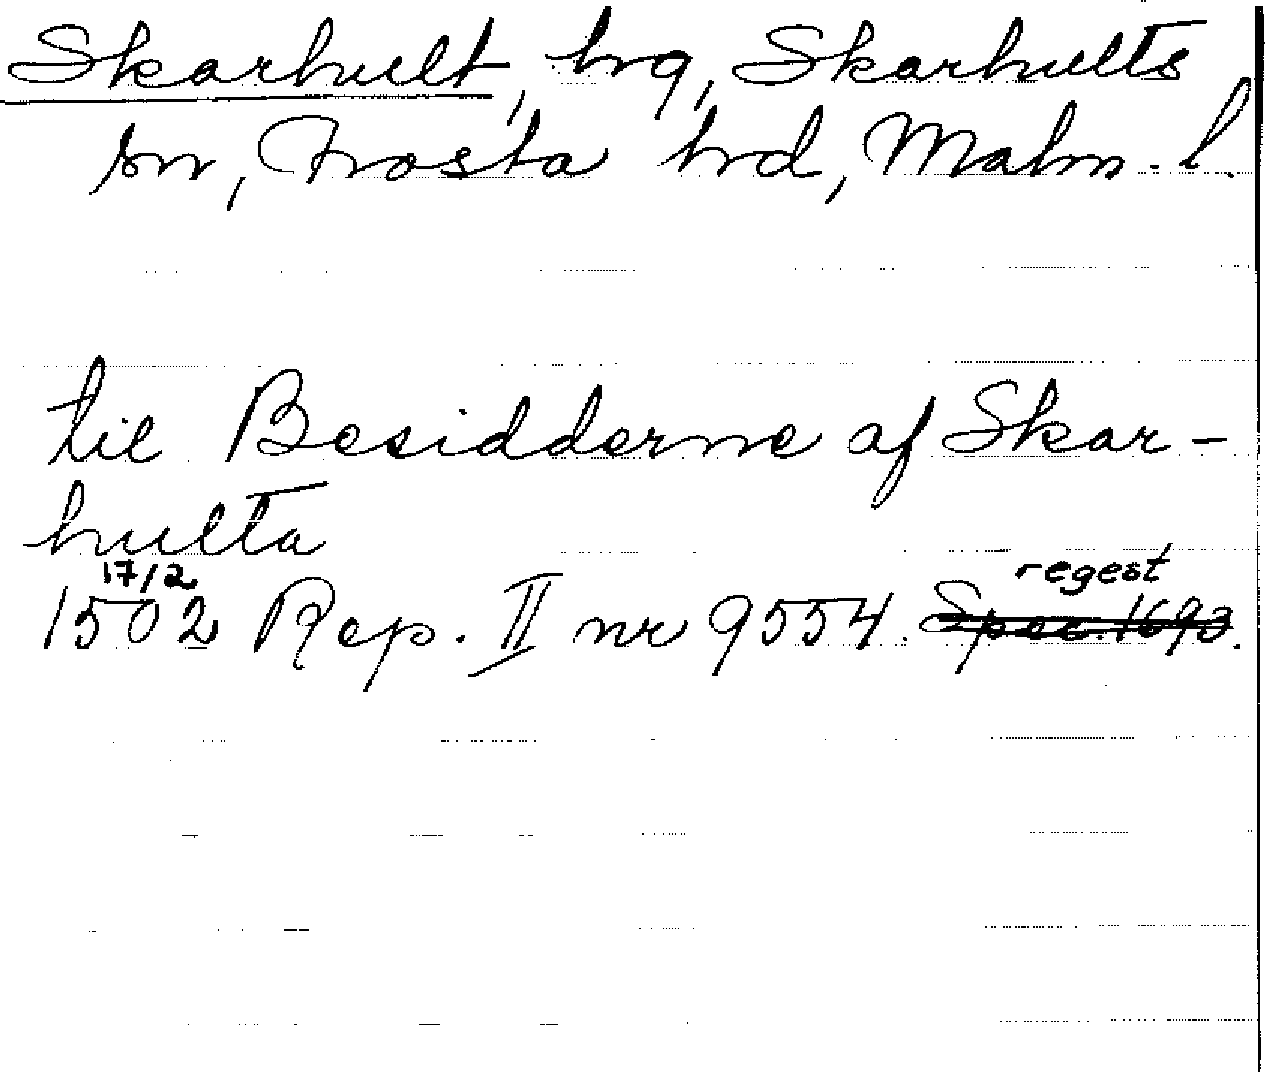 Skarhult, hrg, Skarhults
sn, Frosta hrd, Malm. l.
til Besidderne af Skar-
hulta
17/2
regest
1502 Rep. II nr 9554. Spec. 1693.